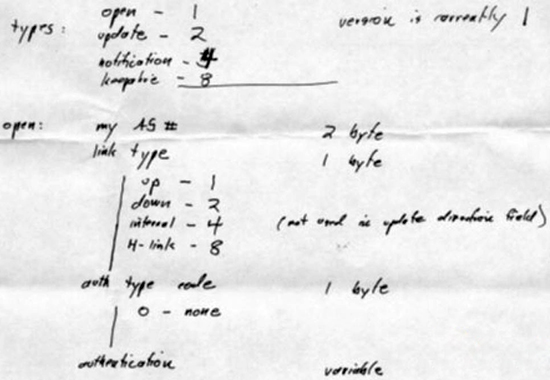 types: open - 1 version is currently 1
update - 2
notification - 4
keepalive - 8
open: my AS # 2 byte
link type 1 byte
up - 1
down - 2
internal - 4 (not used in update direction field)
H-link - 8
auth type code 1 byte
0 - none
authentication variable